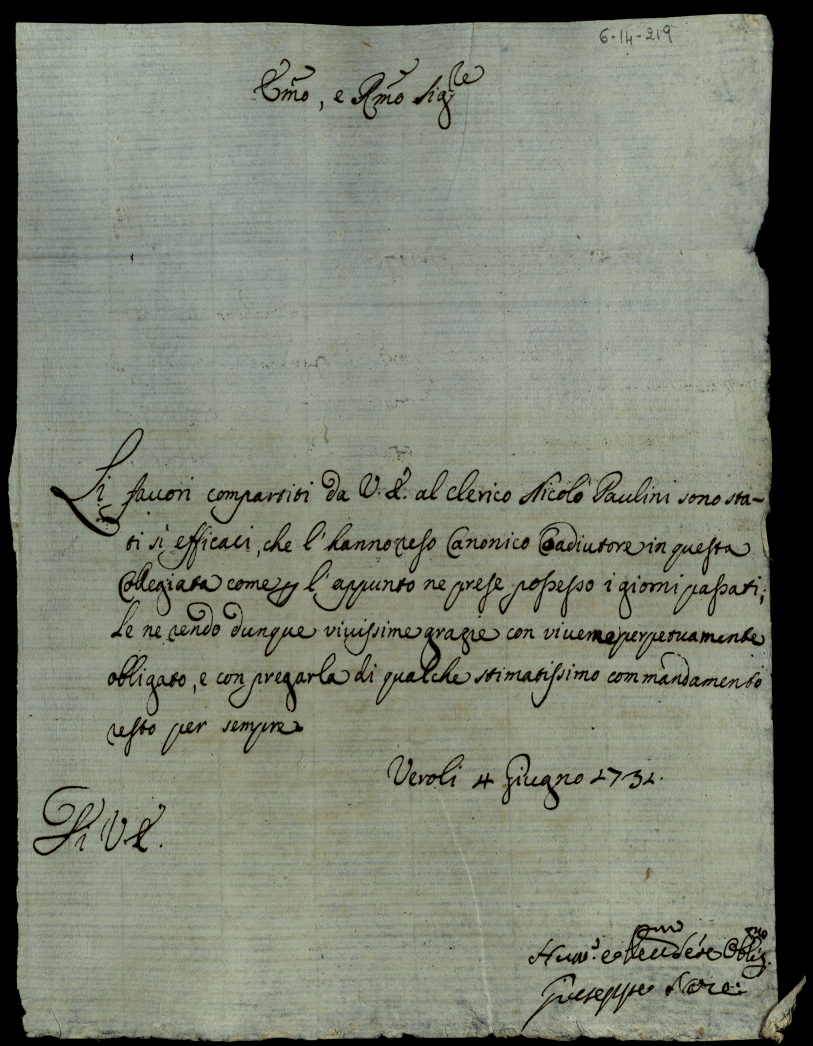 6-14-219
Emo, e Rmo Sigre
Li favori compartiti da V. E. al clerico Nicolò Paulini sono sta-
ti sì efficaci, che l'hanno reso Canonico Coadiutore in questa
Collegiata come l'appunto ne prese possesso i giorni passati;
Le ne rendo dunque vivissime grazie con viverne perpetuamente
obligato, e con pregarla di qualche stimatissimo commandamento
resto per sempre
Veroli 4 Giugno 1731.
Di V. E.
Giuseppe